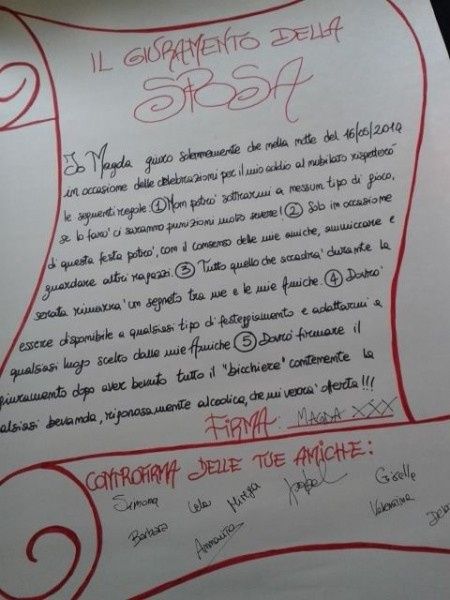 IL GIURAMENTO DELLA
SPOSA
Io Magda giuro solennemente che nella notte del 16/05/2012
in occasione delle celebrazioni per il mio addio al nubilato rispetterò
le seguenti regole: ① Non potrò sottrarmi a nessun tipo di gioco,
se lo farò ci saranno punizioni molto severe! ② Solo in occasione
di questa festa potrò, con il consenso delle mie amiche, ammiccare e
guardare altri ragazzi. ③ Tutto quello che accadrà durante la
serata rimarrà un segreto tra me e le mie Amiche. ④ Dovrò
essere disponibile a qualsiasi tipo di festeggiamento e adattarmi a
qualsiasi luogo scelto dalle mie Amiche ⑤ Dovrò firmare il
giuramento dopo aver bevuto tutto il "bicchiere" contenente la
alsiasi bevanda, rigorosamente alcoolica, che mi verrà offerta!!!
FIRMA: MAGDA XXX
CONTROFIRMA DELLE TUE AMICHE:
Simona Lela Mirija Giselle
Barbara Annarita Valentina